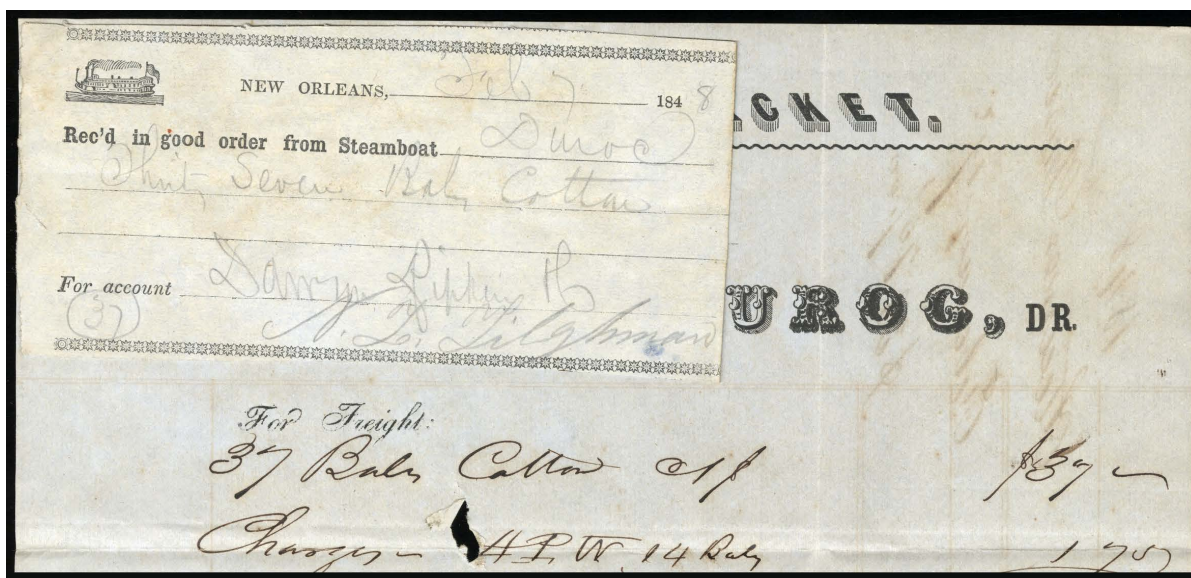 NEW ORLEANS, Feb 7 1848
Rec'd in good order from Steamboat Duroc
Thirty Seven Bales Cotton
For account
(37)
CKET.
UROC, DR.
For Freight:
37 Bales Cotton $37
Charges 14 Bales 1 75